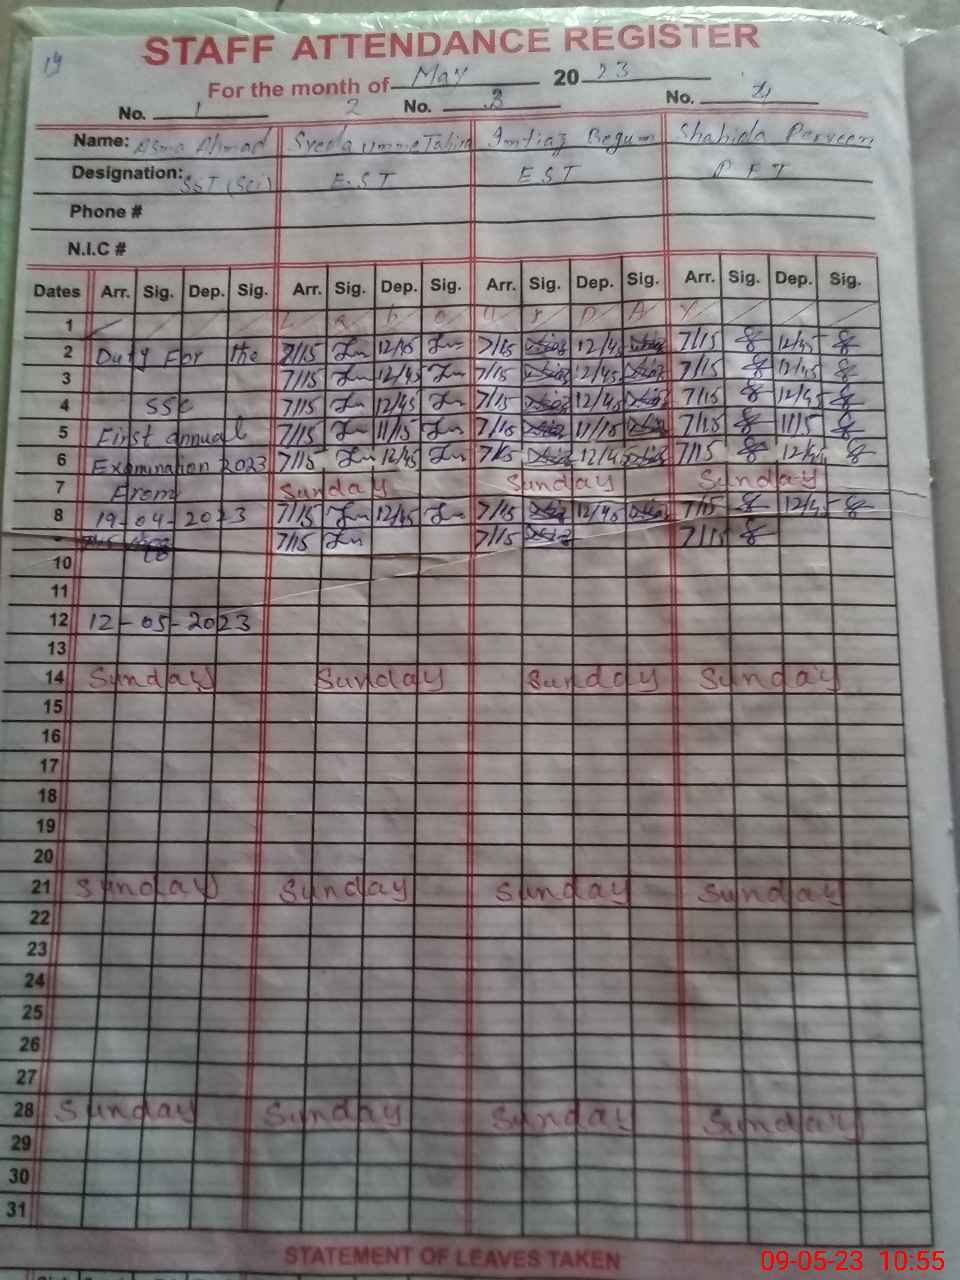 19
STAFF ATTENDANCE REGISTER
For the month of May 2023
No. 1 2 No. 3 No. 4
Name: Asma Ahmad Syeda umme Tahira Imtiaz Begum Shahida Parveen
Designation: SST (Sci) E.ST EST PET
Phone #
N.I.C #
Dates Arr. Sig. Dep. Sig. Arr. Sig. Dep. Sig. Arr. Sig. Dep. Sig. Arr. Sig. Dep. Sig.
1 L a b o u r D A Y
2 Duty For the 7/15 12/45 7/15 12/45 7/15 12/45
3 7/15 12/45 7/15 12/45 7/15 12/45
4 SSC 7/15 12/45 7/15 12/45 7/15 12/45
5 First annual 7/15 11/15 7/15 11/15 7/15 11/15
6 Examination 2023 7/15 12/45 7/15 12/45 7/15 12/45
7 From Sunday Sunday Sunday
8 19-04-2023 7/15 12/45 7/15 12/45 7/15 12/45
9 7/15 7/15 7/15
10
11
12 12-05-2023
13
14 Sunday Sunday Sunday Sunday
15
16
17
18
19
20
21 Sunday Sunday Sunday Sunday
22
23
24
25
26
27
28 Sunday Sunday Sunday Sunday
29
30
31
STATEMENT OF LEAVES TAKEN
09-05-23 10:55